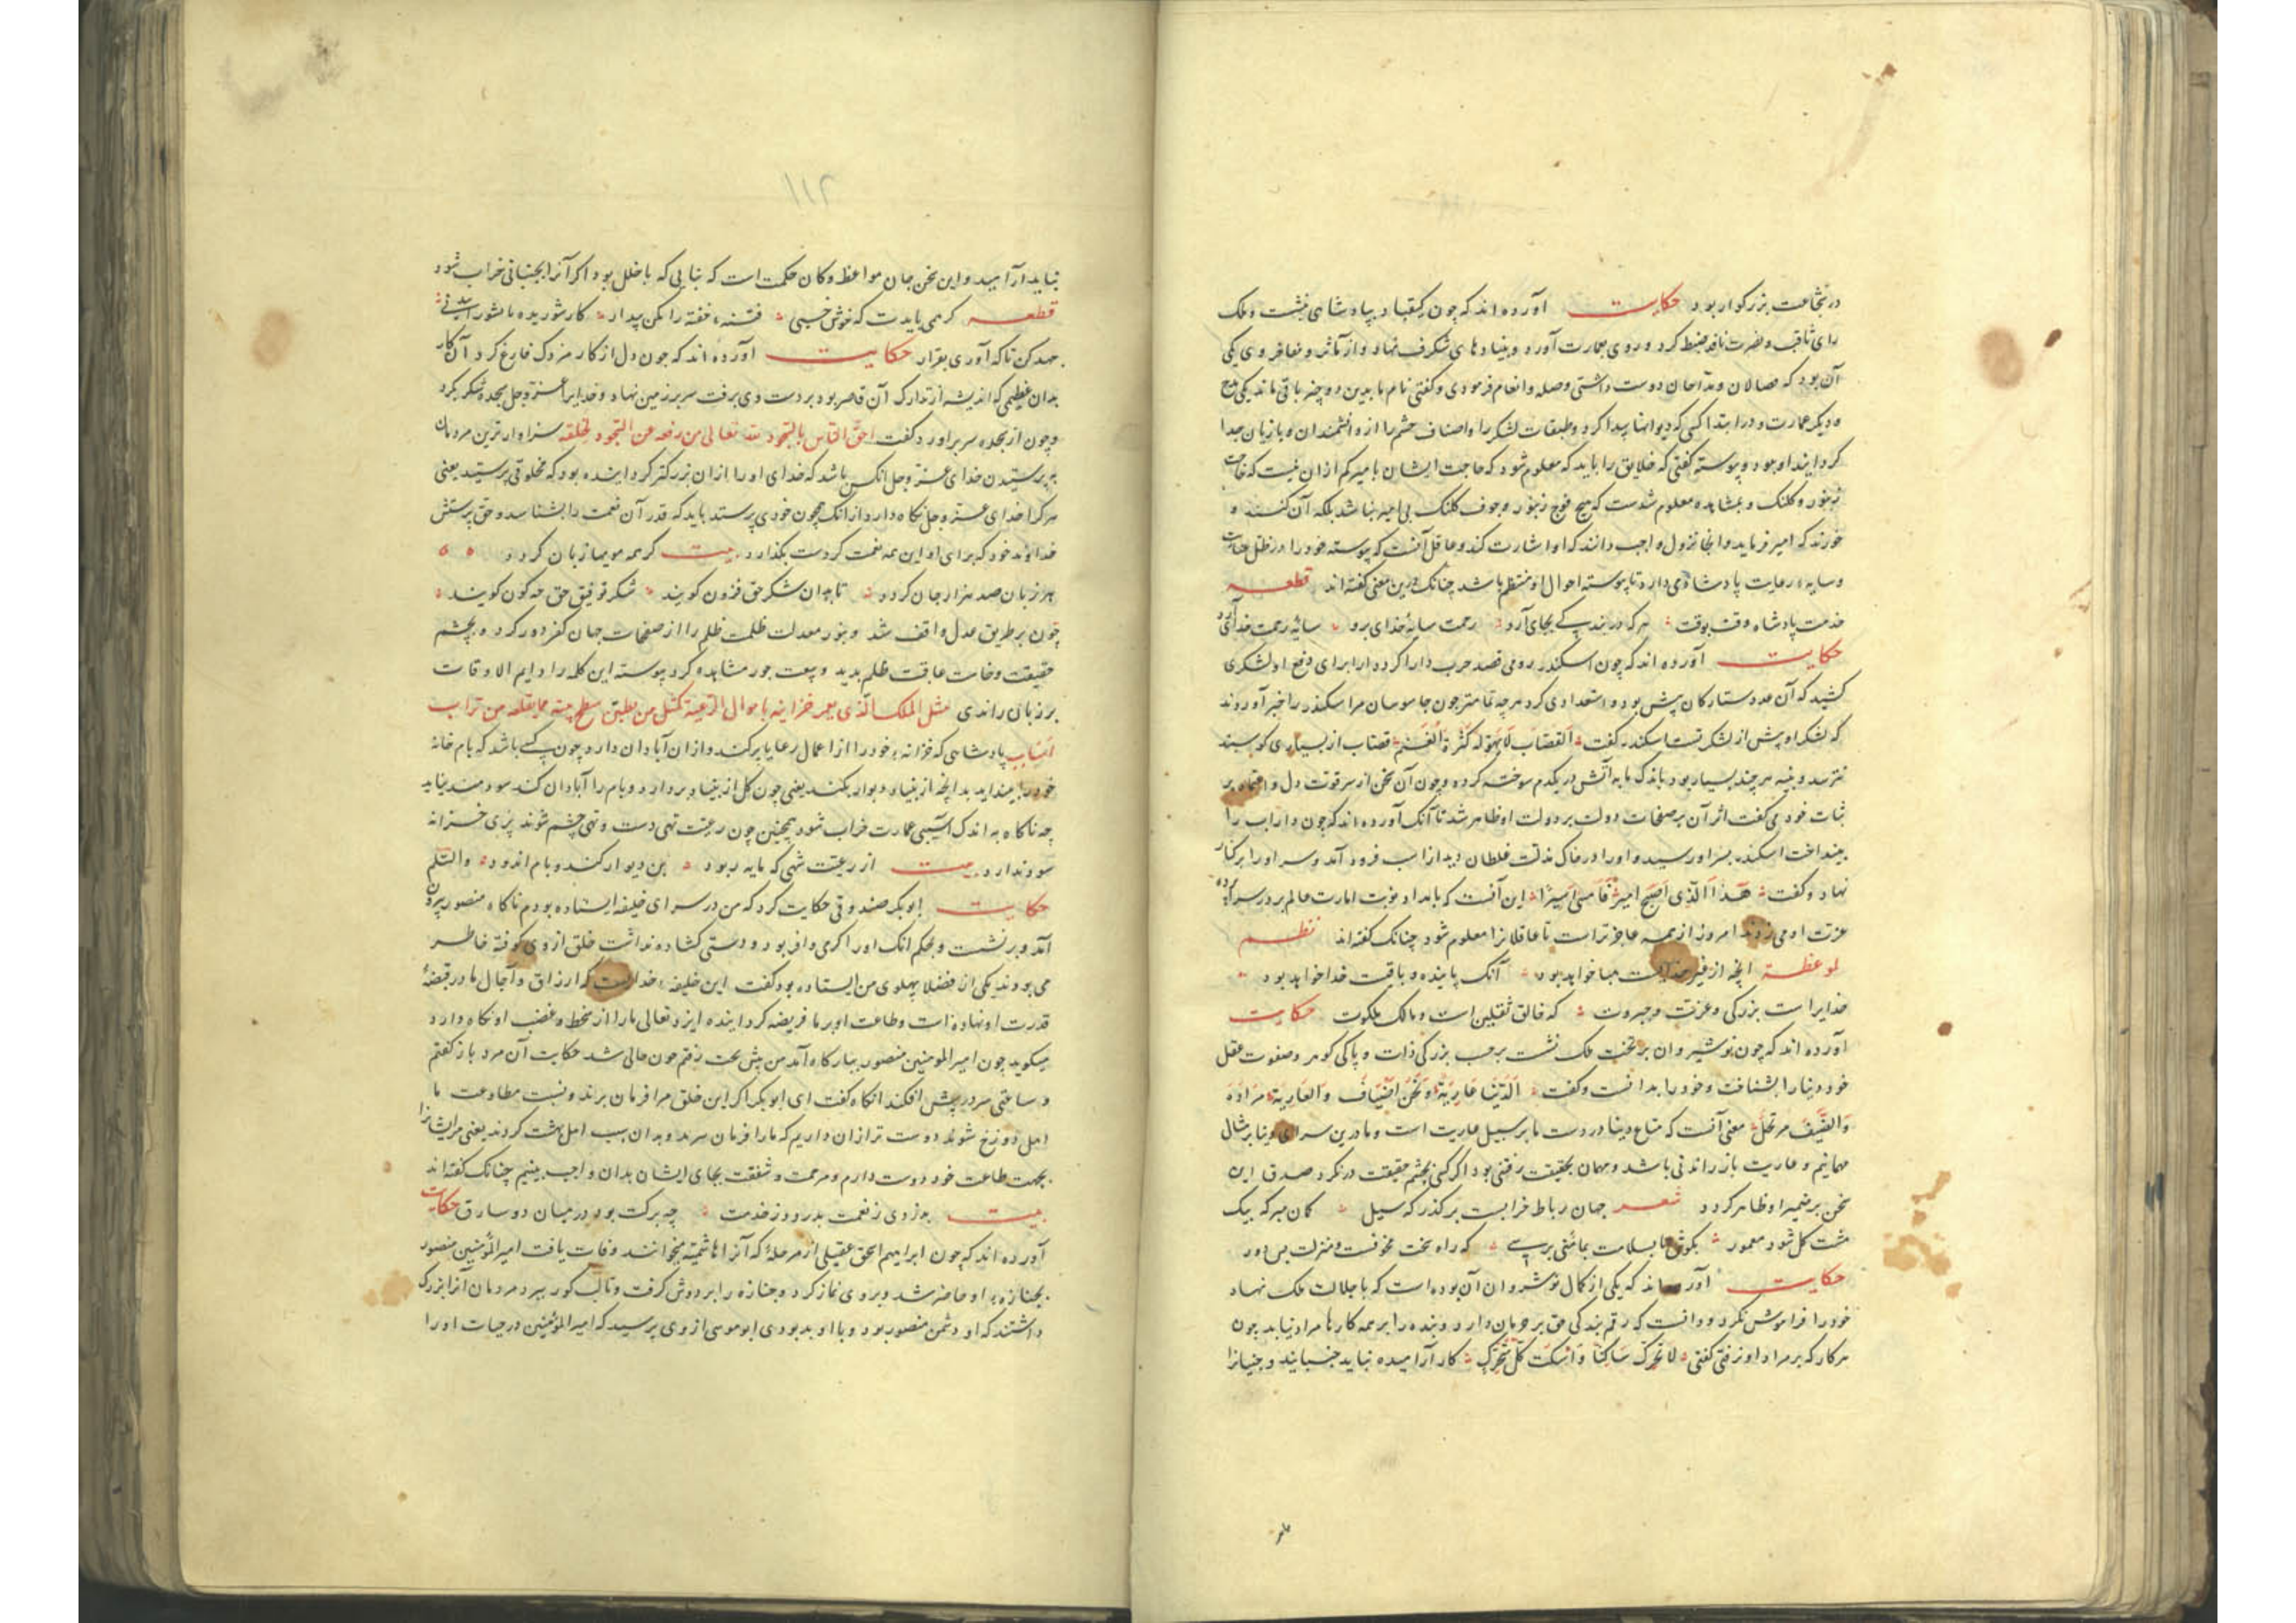 در شجاعت بزرگوار بود حکایت آورده اند که چون کیقباد بپادشاهی نشست و ملک
رای ثاقب و نصرت نافذ ضبط کرد و روی بعمارت آورد و بنیادهای شکرف نهاد و از مآثر و مفاخر وی یکی
آن بود که فصالان و مداحان دوست داشتی وصله و انعام فرمودی و گفتی نام ما بدین دو چیز باقی ماند یکی مدح
و دیگر عمارت و در ابتدا کسی که دیوانها پیدا کرد و طبقات لشکر را و اصناف حشم را از دانشمندان و بازیان جدا
کردانید او بود و پیوسته گفتی که خلایق را باید که معلوم شود که حاجت ایشان با میر کم ازان نیست که حاجت
زنبور و کلنک و بمشاهده معلوم شدست که هیچ فوج زنبور و جوف کلنک بی امیر نباشد بلکه آن کنند و
خورند که امیر فرماید و آنجا نزول واجب دانند که او اشارت کند و عاقل آنست که پیوسته خود را در ظل حمایت
و سایه رعایت پادشاهی دارد تا پیوسته احوال او منتظم باشد چنانک درین معنی گفته اند قطعه
خدمت پادشاه وقت بوقت هر که در بندگی بجای آرد رحمت سایهٔ خدای برو سایهٔ رحمت خدای آرد
حکایت آورده اند که چون اسکندر رومی قصد حرب دارا کرد دارا برای دفع او لشکری
کشید که آن عدد ستارکان بیش بود و استعدادی کرد هر چه تمامتر چون جاسوسان مر اسکندر را خبر آوردند
که لشکر او بیش از لشکر تست اسکندر گفت القصاب لا یهوله کثرة الغنم قصاب از بسیاری گوسبند
نترسد و پنبه هر چند بسیار بود باندک مایه آتش در یکدم سوخته کردد و چون آن سخن از سر قوت دل و اعتماد بر
ثبات خود می گفت اثر آن بر صفحات دولت بر دولت او ظاهر شد تا آنک آورده اند که چون داراب را
بینداخت اسکندر بسر او رسید و او را در خاک مذلت غلطان دید از اسب فرود آمد و سر او را بر کنار
نهاد و گفت هذا الذی اصبح امیرا فامسی اسیرا این آنست که بامداد نوبت امارت عالم بر در سراپرده
عزت او می زدند امروز از همه عاجزتر است تا عاقلانرا معلوم شود چنانک گفته اند نظم
لموعظة آنچه از غیر خداست هبا خواهد بود آنک پاینده و باقیست خدا خواهد بود
خدایراست بزرگی و عزت و جبروت که خالق ثقلین است و مالک ملکوت حکایت
آورده اند که چون نوشیروان بر تخت ملک نشست بر حسب بزرگی ذات و پاکی گوهر و صفوت عقل
خود دنیا را بشناخت و خود را بدانست و گفت الدنیا عاریة و نحن اضیاف والعاریة مردودة
والضیف مرتحل معنی آنست که متاع دنیا در دست ما بر سبیل عاریت است و ما درین سرای دنیا بر مثال
مهمانیم و عاریت بازراندنی باشد و مهمان بحقیقت رفتنی بود اگر کسی بچشم حقیقت درنگرد صدق این
سخن بر ضمیر او ظاهر کردد شعر جهان رباط خرابست بر گذرگه سیل گمان مبر که بیک
مشت گل شود معمور بکوش تا بسلامت بمأمنی برسی که راه سخت مخوفست و منزلت بس دور
حکایت آورده اند که یکی از کمال نوشروان آن بوده است که با جلالت ملک نهاد
خود را فراموش نکرد و دانست که رقم بندگی حق بر دارد و بنده را بر همه کارها مراد نباید چون
هر کار که بر مراد او نرفتی گفتی لا تحرک ساکنا و اسکت کل متحرک کار آرامیده نباید جنبانید و جنبانرا
ملر
۱۱۲
نباید آرامید و این سخن جان مواعظ و کان حکمت است که بنایی که با خلل بود اگر آنرا بجنبانی خراب شود
قطعه کرهمی بایدت که خوش خسبی فتنهٔ خفته را مکن بیدار کار شوریده را
جهد کن تا که آوری بقرار حکایت آورده اند که چون دل از کار مزدک فارغ کرد آن کار
بدان عظیمی که اندیشه از تدارک آن قاصر بود بر دست وی برفت سر بر زمین نهاد و خدایرا عز و جل سجده شکر بکرد
و چون از سجده سر برآورد گفت احق الناس بالسجود لله تعالی من رفعه عن السجود لخلقه سزاوارترین مردمان
بپرستیدن خدای عز و جل آنکس باشد که خدای او را ازان بزرگتر کردانیده بود که مخلوقی پرستید یعنی
هر کرا خدای عز و جل نگاه دارد از آنک همچون خودی پرستد باید که قدر آن نعمت را بشناسد و حق پرستش
خداوند خود که برای او این همه نعمت کردست بگذارد بیت گر همه مویها زبان گردد
هر زبان صد هزار جان گردد تا بدان شکر حق فزون گویند شکر توفیق حق چه گون گویند
چون بر طریق عدل واقف شد و بنور معدلت ظلمت ظلم را از صفحات جهان کفر دور کرد و بچشم
حقیقت وخامت عاقبت ظلم بدید و جور مشاهده کرد پیوسته این کلمه را دایم الاوقات
بر زبان راندی مثل الملک الذی یعمر خزاینه باموال الرعیة کمثل من یطین سطح بیته بما یقلعه من تراب
اساسه پادشاهی که خزانه خود را از اعمال رعایا پر کند و ازان آبادان دارد چون کسی باشد که بام خانه
خود را بیندایند بدانچه از بنیاد دیوار بکند یعنی چون گل از بنیاد بردارد و بام را آبادان کند سودمند نیاید
چه ناگاه به اندک آسیبی عمارت خراب شود همچنین چون رعیت تهی دست و تهی چشم شوند پری خزانه
سود ندارد بیت از رعیت شهی که مایه ربود بن دیوار کند و بام اندود والسلم
حکایت ابوبکر صندوقی حکایت کرد که من در سرای خلیفه ایستاده بودم ناگاه منصور بیرون
آمد و برنشست و بحکم آنک او را کرمی وافر بود و دستی گشاده نداشت خلق از وی کوفته خاطر
می بودند یکی از فضلا پهلوی من ایستاده بود گفت این خلیفه خداست که ارزاق و آجال ما در قبضهٔ
قدرت او نهاده است و طاعت او بر ما فریضه کردانیده ایزد تعالی ما را از سخط و غضب او نگاه دارد
میگوید چون امیر المومنین منصور ببارگاه آمد من پیش تخت رفتم چون خالی شد حکایت آن مرد باز گفتم
و ساعتی سر در پیش افکند آنگاه گفت ای ابوبکر اگر این خلق مرا فرمان برند و نسبت مطاوعت ما
اهل دوزخ شوند دوست تر ازان داریم که ما را فرمان نبرند و بدان سبب اهل بهشت کردند یعنی مر ایشانرا
بجهت طاعت خود دوست دارم و مرحمت و شفقت بجای ایشان بدان واجب بینیم چنانک گفته اند
بیت بدزدی ز نعمت بدزدد ز خدمت چه برکت بود در میان دو سارق حکایت
آورده اند که چون ابراهیم اسحق عقیلی از مرحلهٔ که آنرا هاشمیه میخوانند وفات یافت امیر المؤمنین منصور
بجنازه او حاضر شد و بر وی نماز کرد و جنازه را بر دوش گرفت و تا لب گور ببرد مردمان آنرا بزرگ
داشتند که او دشمن منصور بود و با او بد بودی ابوموسی از وی پرسید که امیر المؤمنین در حیات او را